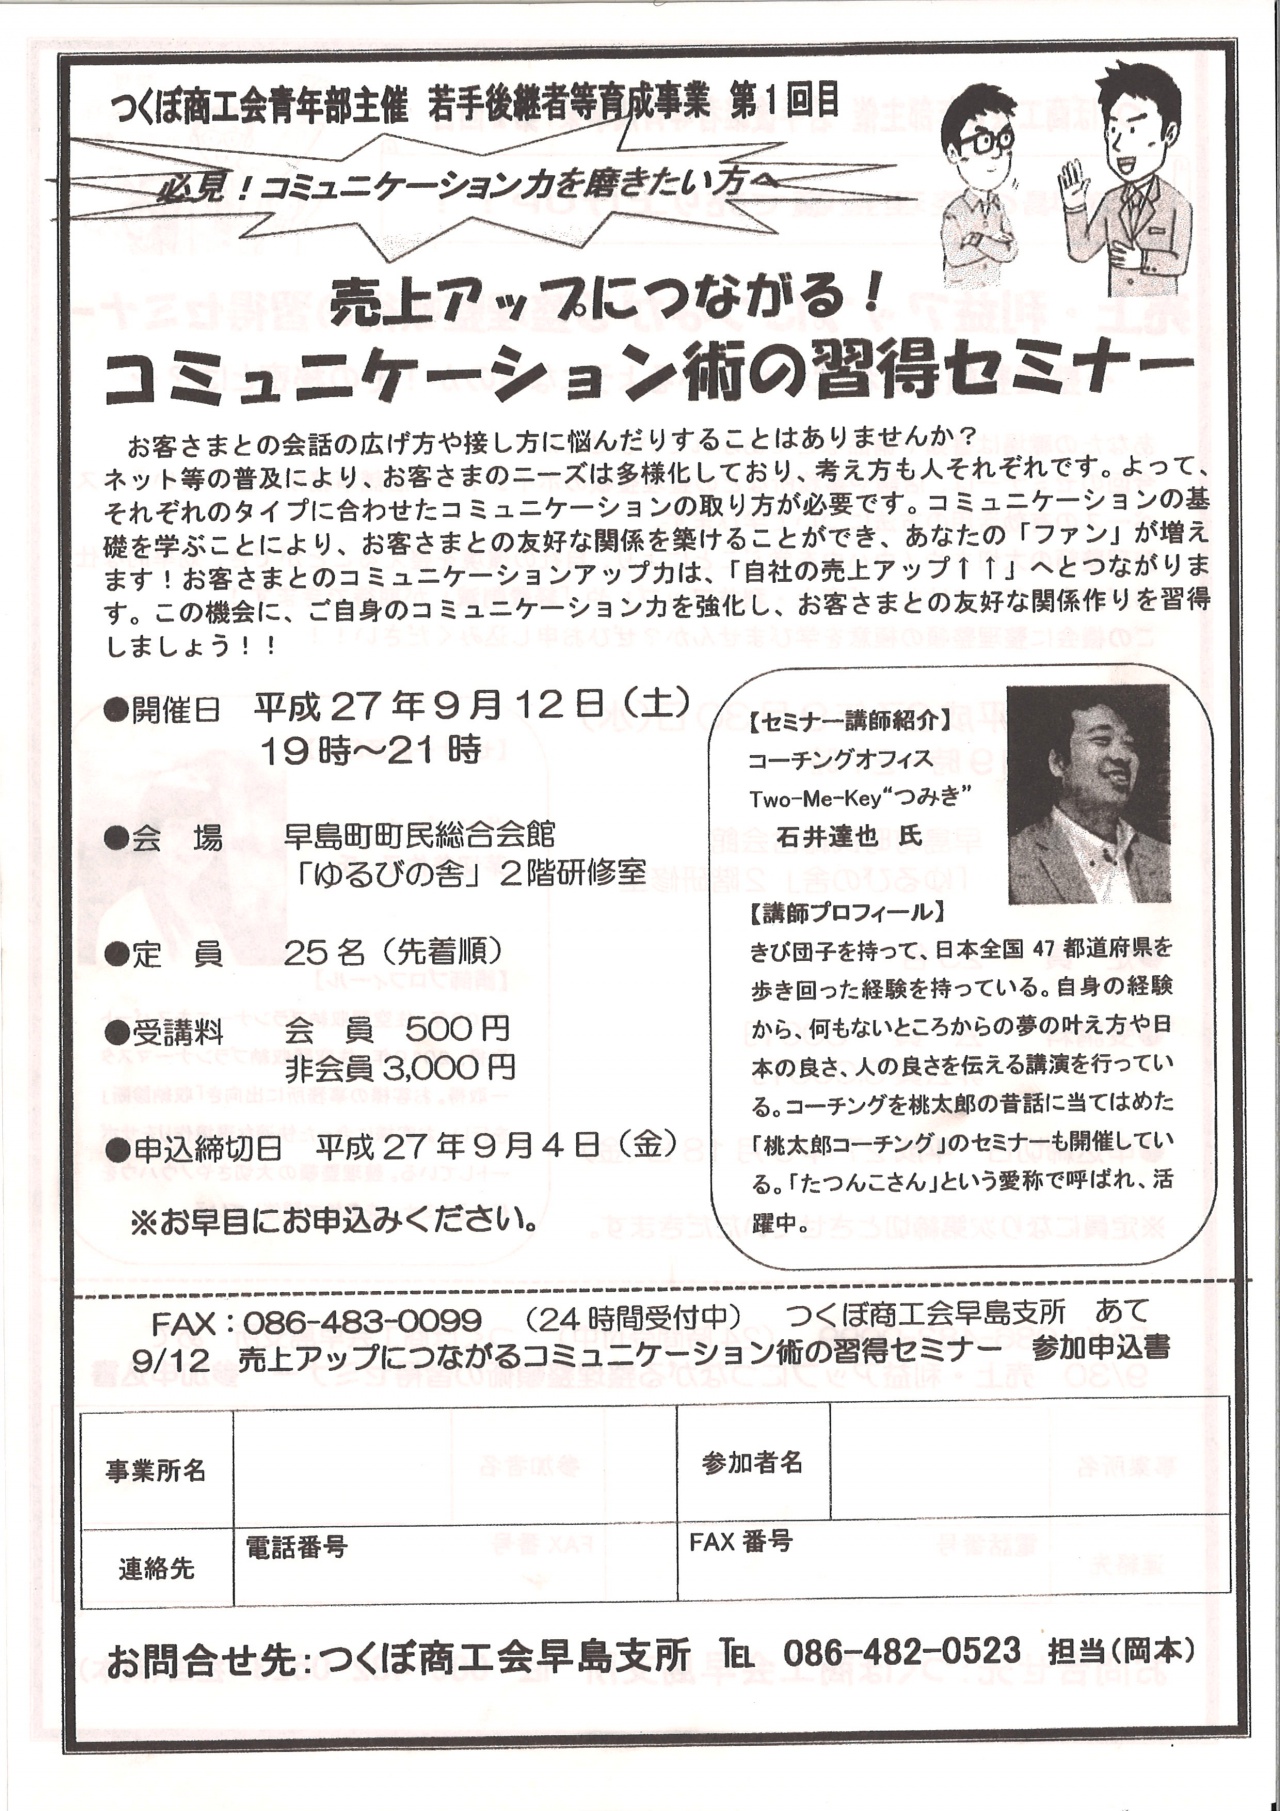 つくぼ商工会青年部主催 若手後継者等育成事業 第1回目
必見！コミュニケーション力を磨きたい方へ
売上アップにつながる！
コミュニケーション術の習得セミナー
お客さまとの会話の広げ方や接し方に悩んだりすることはありませんか？
ネット等の普及により、お客さまのニーズは多様化しており、考え方も人それぞれです。よって、
それぞれのタイプに合わせたコミュニケーションの取り方が必要です。コミュニケーションの基
礎を学ぶことにより、お客さまとの友好な関係を築けることができ、あなたの「ファン」が増え
ます！お客さまとのコミュニケーションアップ力は、「自社の売上アップ↑↑」へとつながりま
す。この機会に、ご自身のコミュニケーション力を強化し、お客さまとの友好な関係作りを習得
しましょう！！
●開催日 平成27年9月12日（土）
19時～21時
●会 場 早島町町民総合会館
「ゆるびの舎」2階研修室
●定 員 25名（先着順）
●受講料 会 員 500円
非会員3,000円
●申込締切日 平成27年9月4日（金）
※お早目にお申込みください。
【セミナー講師紹介】
コーチングオフィス
Two-Me-Key“つみき”
石井達也 氏
【講師プロフィール】
きび団子を持って、日本全国 47 都道府県を
歩き回った経験を持っている。自身の経験
から、何もないところからの夢の叶え方や日
本の良さ、人の良さを伝える講演を行ってい
る。コーチングを桃太郎の昔話に当てはめた
「桃太郎コーチング」のセミナーも開催してい
る。「たつんこさん」という愛称で呼ばれ、活
躍中。
FAX：086-483-0099 （24時間受付中） つくぼ商工会早島支所 あて
9/12 売上アップにつながるコミュニケーション術の習得セミナー 参加申込書
事業所名
参加者名
連絡先
電話番号
FAX 番号
お問合せ先：つくぼ商工会早島支所 ℡ 086-482-0523 担当（岡本）